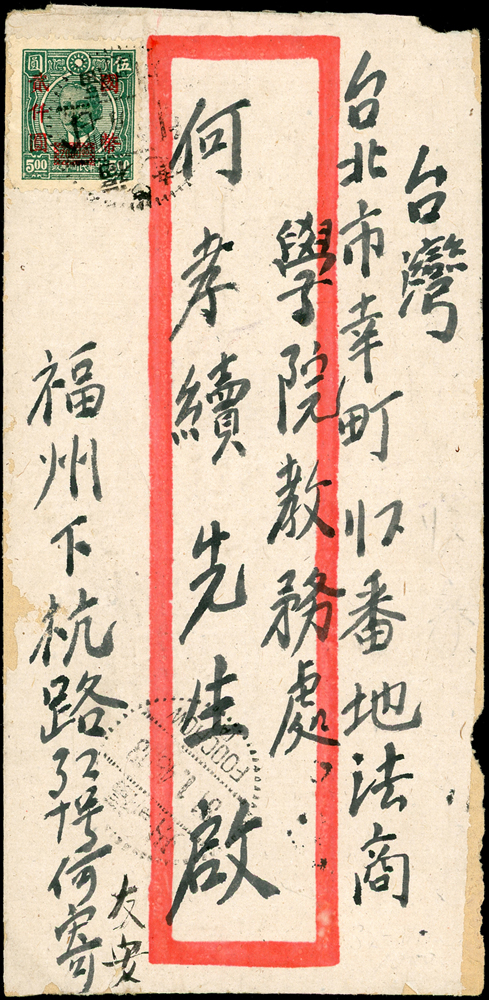 台灣
台北市幸町 番地法商
學院教務處
何孝續先生啟
福州下杭路 何寄
友安
伍 圓
國幣
貳仟圓
500 500
FOOCHOW